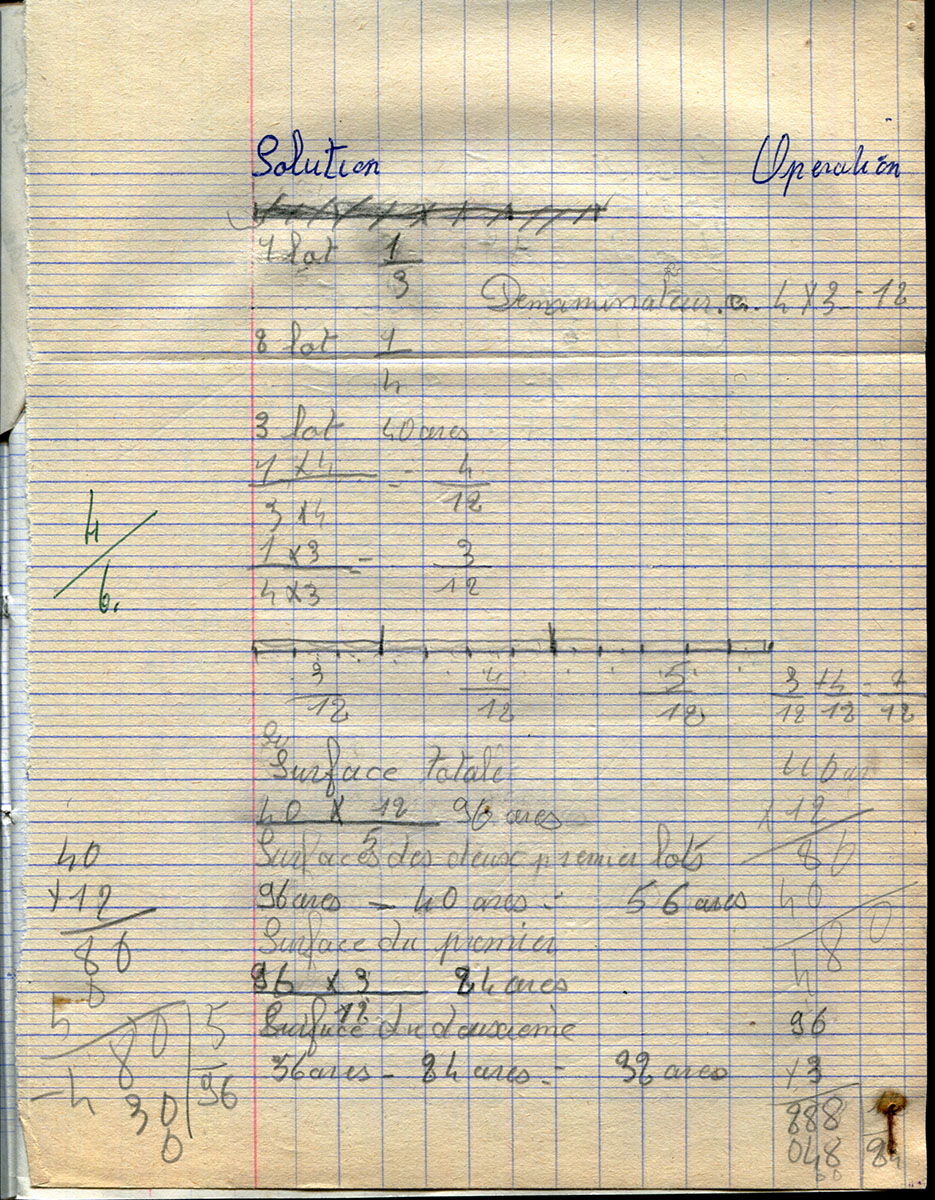 Solution Operation
1 lot 1
3
Denaminateur. 4 x 3 - 12
2 lot 1
4
3 lot 40 ares
1 x 4 = 4
3 x 4 12
4
6.
1 x 3 = 3
4 x 3 12
3 4 5 3 + 4 = 7
12 12 12 12 12 12
Surface totale
40 x 12 96 ares
5
Surfaces des deux premier lots
96 ares - 40 ares = 56 ares
Surface du premier
96 x 3 24 ares
12
Surface du deuxième
56 ares - 24 ares = 32 ares
40
x 12
80
480 5
30 96
0
x 12
80
40
480
96
x 3
288
048